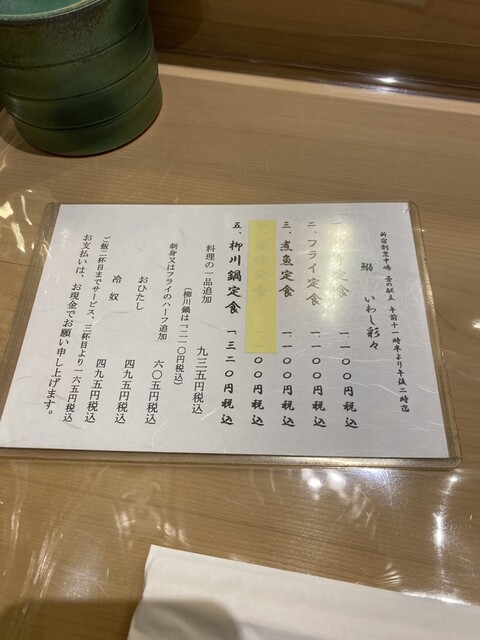 新宿割烹中嶋 昼の献立 午前十一時半より午後二時迄
鰯 いわし彩々
定食 一、一〇〇円税込
二、フライ定食 一、一〇〇円税込
三、煮魚定食 一、一〇〇円税込
〇〇円税込
五、柳川鍋定食 一、三二〇円税込
料理の一品追加 九三五円税込
(柳川鍋は一、二一〇円税込)
刺身又はフライのハーフ追加 六〇五円税込
おひたし 四九五円税込
冷奴 四九五円税込
ご飯二杯目までサービス、三杯目より一六五円税込
お支払いは、お現金でお願い申し上げます。